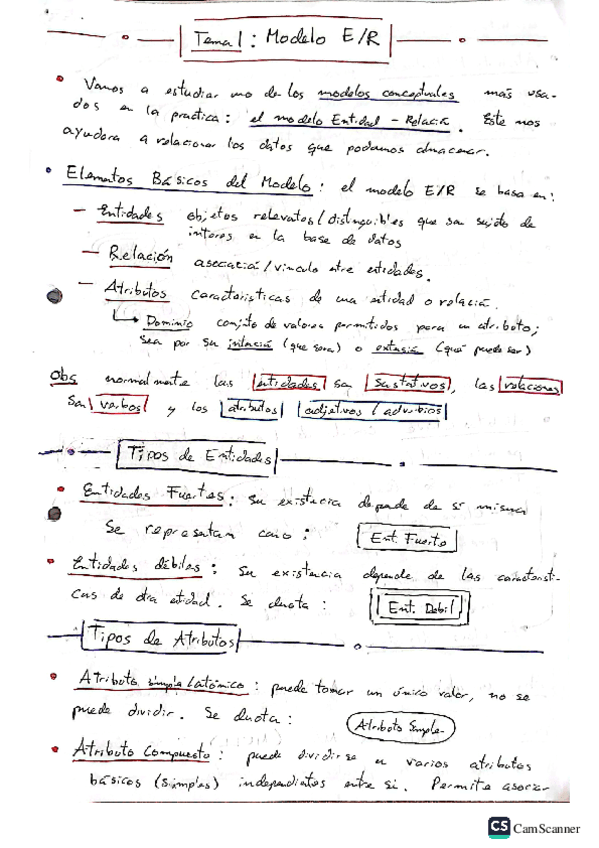 Tema 1: Modelo E/R
• Vamos a estudiar uno de los modelos conceptuales más usa-
dos en la practica: el modelo Entidad - Relación. Este nos
ayudara a relacionar los datos que podamos almacenar.
• Elementos Básicos del Modelo: el modelo E/R se basa en:
- Entidades objetos relevantes/distinguibles que son sujeto de
interes en la base de datos
- Relación asociación/vinculo entre entidades.
- Atributos caracteristicas de una entidad o relación.
↳ Dominio conjunto de valores permitidos para un atributo;
sea por su intención (que sera) o extensión (que puede ser)
Obs normalmente las entidades son sustantivos, las relaciones
son verbos y los atributos adjetivos/adverbios
Tipos de Entidades
• Entidades Fuertes: Su existencia depende de si misma
Se representan como: Ent. Fuerte
• Entidades débiles: Su existencia depende de las caracteristi-
cas de otra entidad. Se denota: Ent. Debil
Tipos de Atributos
• Atributo simple/atómico: puede tomar un único valor, no se
puede dividir. Se denota: Atributo Simple
• Atributo Compuesto: puede dividirse en varios atributos
básicos (simples) independientes entre si. Permite asociar
CS CamScanner